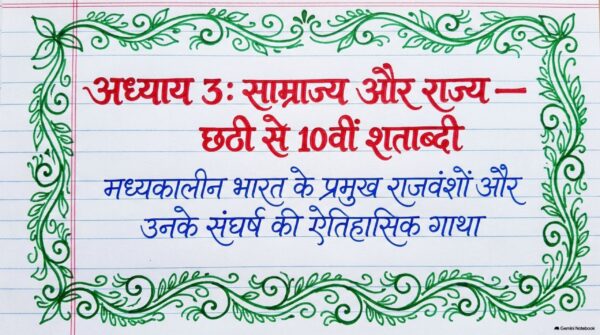 अध्याय 3: साम्राज्य और राज्य –
छठी से 10वीं शताब्दी
मध्यकालीन भारत के प्रमुख राजवंशों और
उनके संघर्ष की ऐतिहासिक गाथा
Gemini Notebook